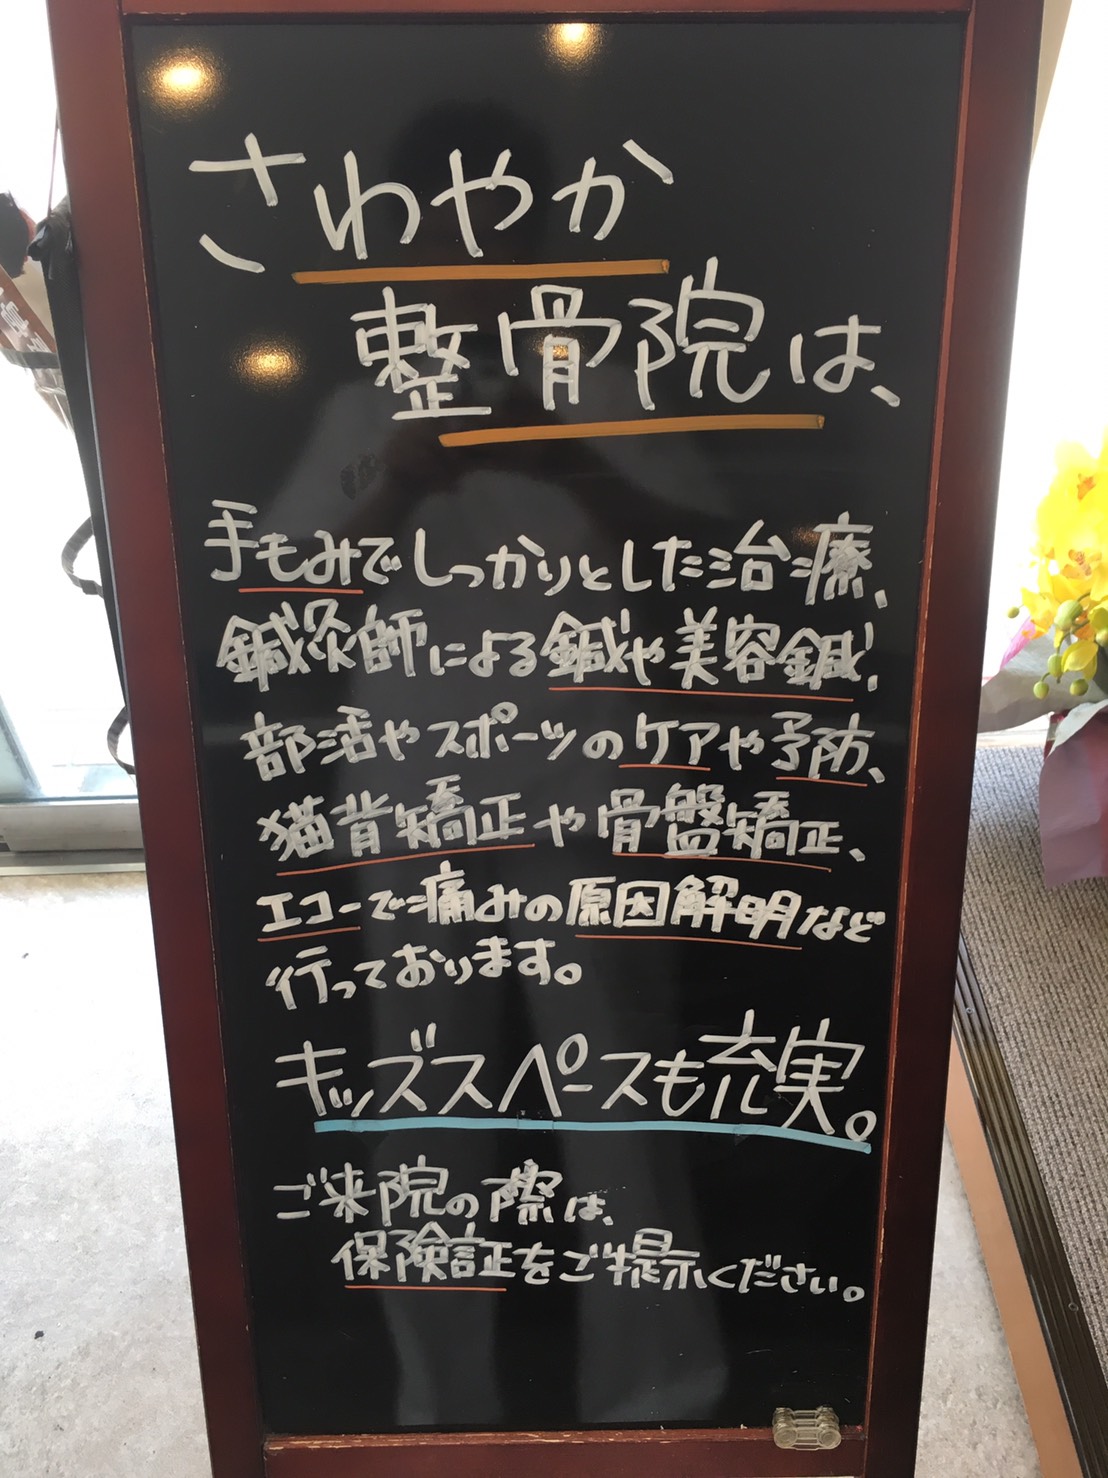 さわやか
整骨院は、
手もみでしっかりとした治療、
鍼灸師による鍼や美容鍼、
部活やスポーツのケアや予防、
猫背矯正や骨盤矯正、
エコーで痛みの原因解明など
行っております。
キッズスペースも充実。
ご来院の際は、
保険証をご提示ください。